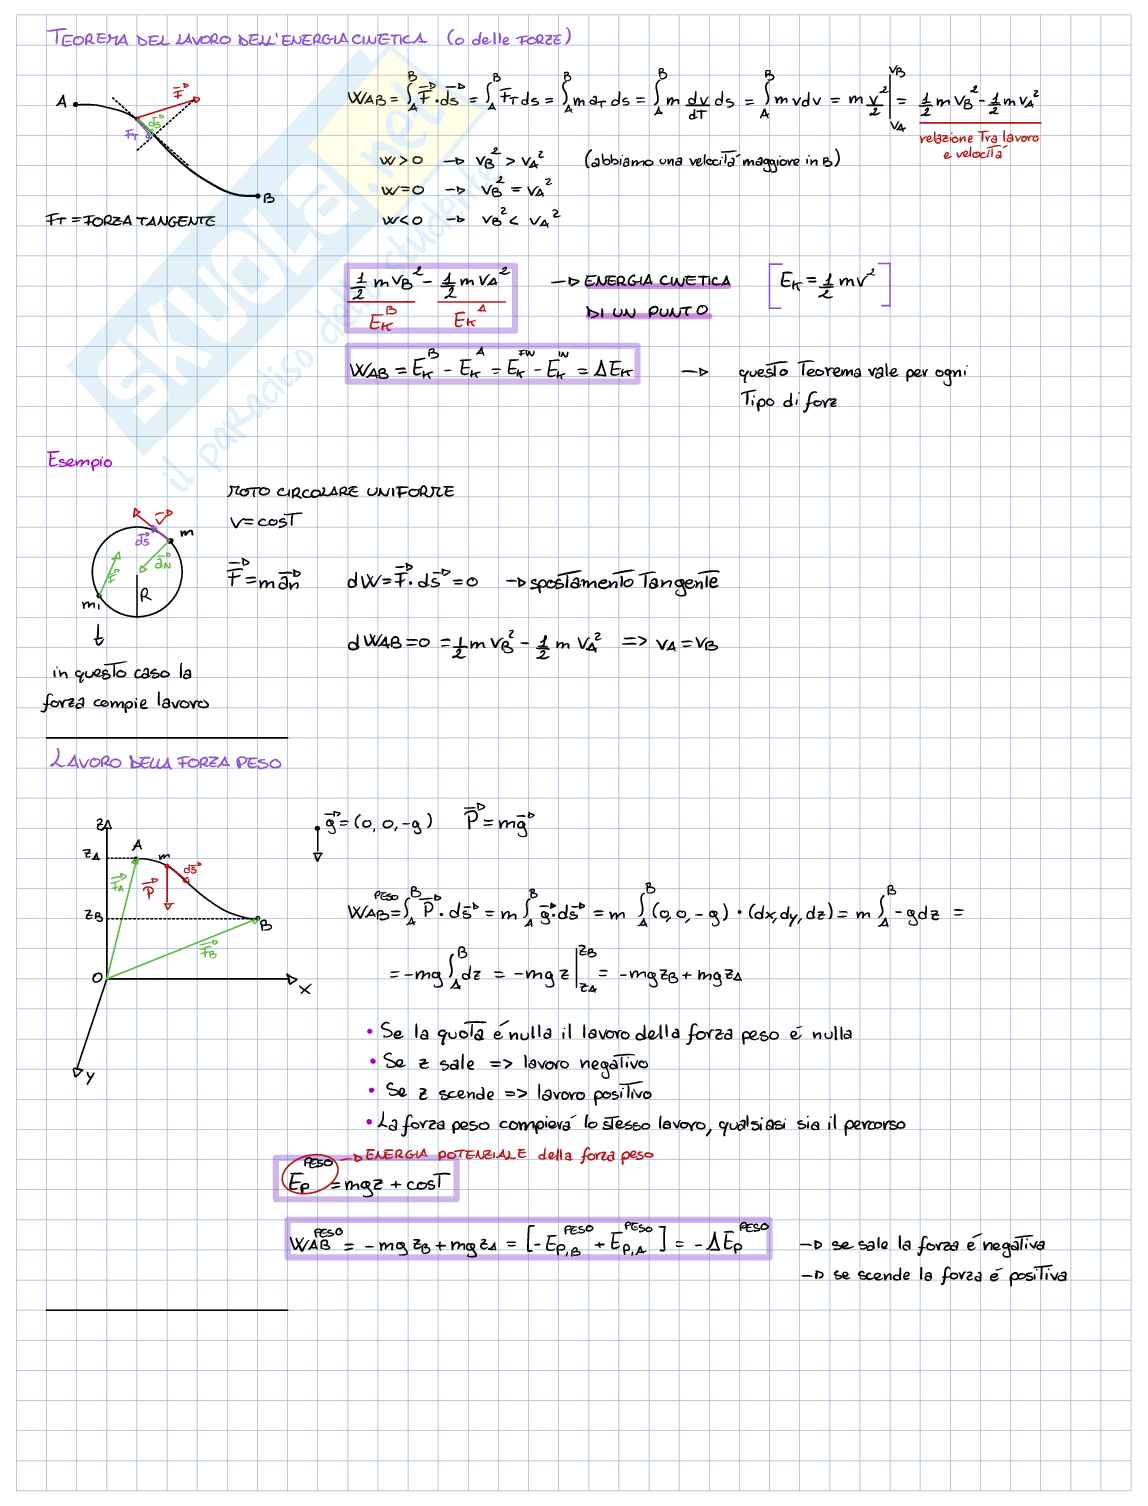 TEOREMA DEL LAVORO DELL'ENERGIA CINETICA (o delle FORZE)
A
F⃗
ds⃗
FT
B
FT = FORZA TANGENTE
WAB = ∫_A^B F⃗ · ds⃗ = ∫_A^B F⃗T ds = ∫_A^B m aT ds = ∫_A^B m dv/dT ds = ∫_A^B m v dv = m v²/2 |_VA^VB = 1/2 m VB² - 1/2 m VA²
relazione Tra lavoro
e velocità
W > 0 → VB² > VA² (abbiamo una velocità maggiore in B)
W = 0 → VB² = VA²
W < 0 → VB² < VA²
1/2 m VB² - 1/2 m VA² → ENERGIA CINETICA [EK = 1/2 mv²]
EK^B EK^A DI UN PUNTO
WAB = EK^B - EK^A = EK^FIN - EK^IN = ΔEK → questo Teorema vale per ogni
Tipo di forz
SKUOLA.net
il paradiso dello studente
Esempio
MOTO CIRCOLARE UNIFORME
V = cosT
v⃗
m
ds⃗
a⃗N
F⃗
R
m1
F⃗ = m a⃗n dW = F⃗ · ds⃗ = 0 → spostamento Tangente
dWAB = 0 = 1/2 m VB² - 1/2 m VA² => VA = VB
in questo caso la
forza compie lavoro
LAVORO DELLA FORZA PESO
g⃗ = (0, 0, -g) P⃗ = mg⃗
z
A
zA
m
ds⃗
r⃗A
P⃗
zB
B
r⃗B
O
x
y
WAB^PESO = ∫_A^B P⃗ · ds⃗ = m ∫_A^B g⃗ · ds⃗ = m ∫_A^B (0, 0, -g) · (dx, dy, dz) = m ∫_A^B -gdz =
= -mg ∫_A^B dz = -mg z |_zA^zB = -mgzB + mgzA
• Se la quota é nulla il lavoro della forza peso é nulla
• Se z sale => lavoro negativo
• Se z scende => lavoro positivo
• La forza peso compierá lo stesso lavoro, qualsiasi sia il percorso
→ ENERGIA POTENZIALE della forza peso
EP^PESO = mgz + cosT
WAB^PESO = -mgzB + mgzA = [-EP,B^PESO + EP,A^PESO] = -ΔEP^PESO → se sale la forza é negativa
→ se scende la forza é positiva